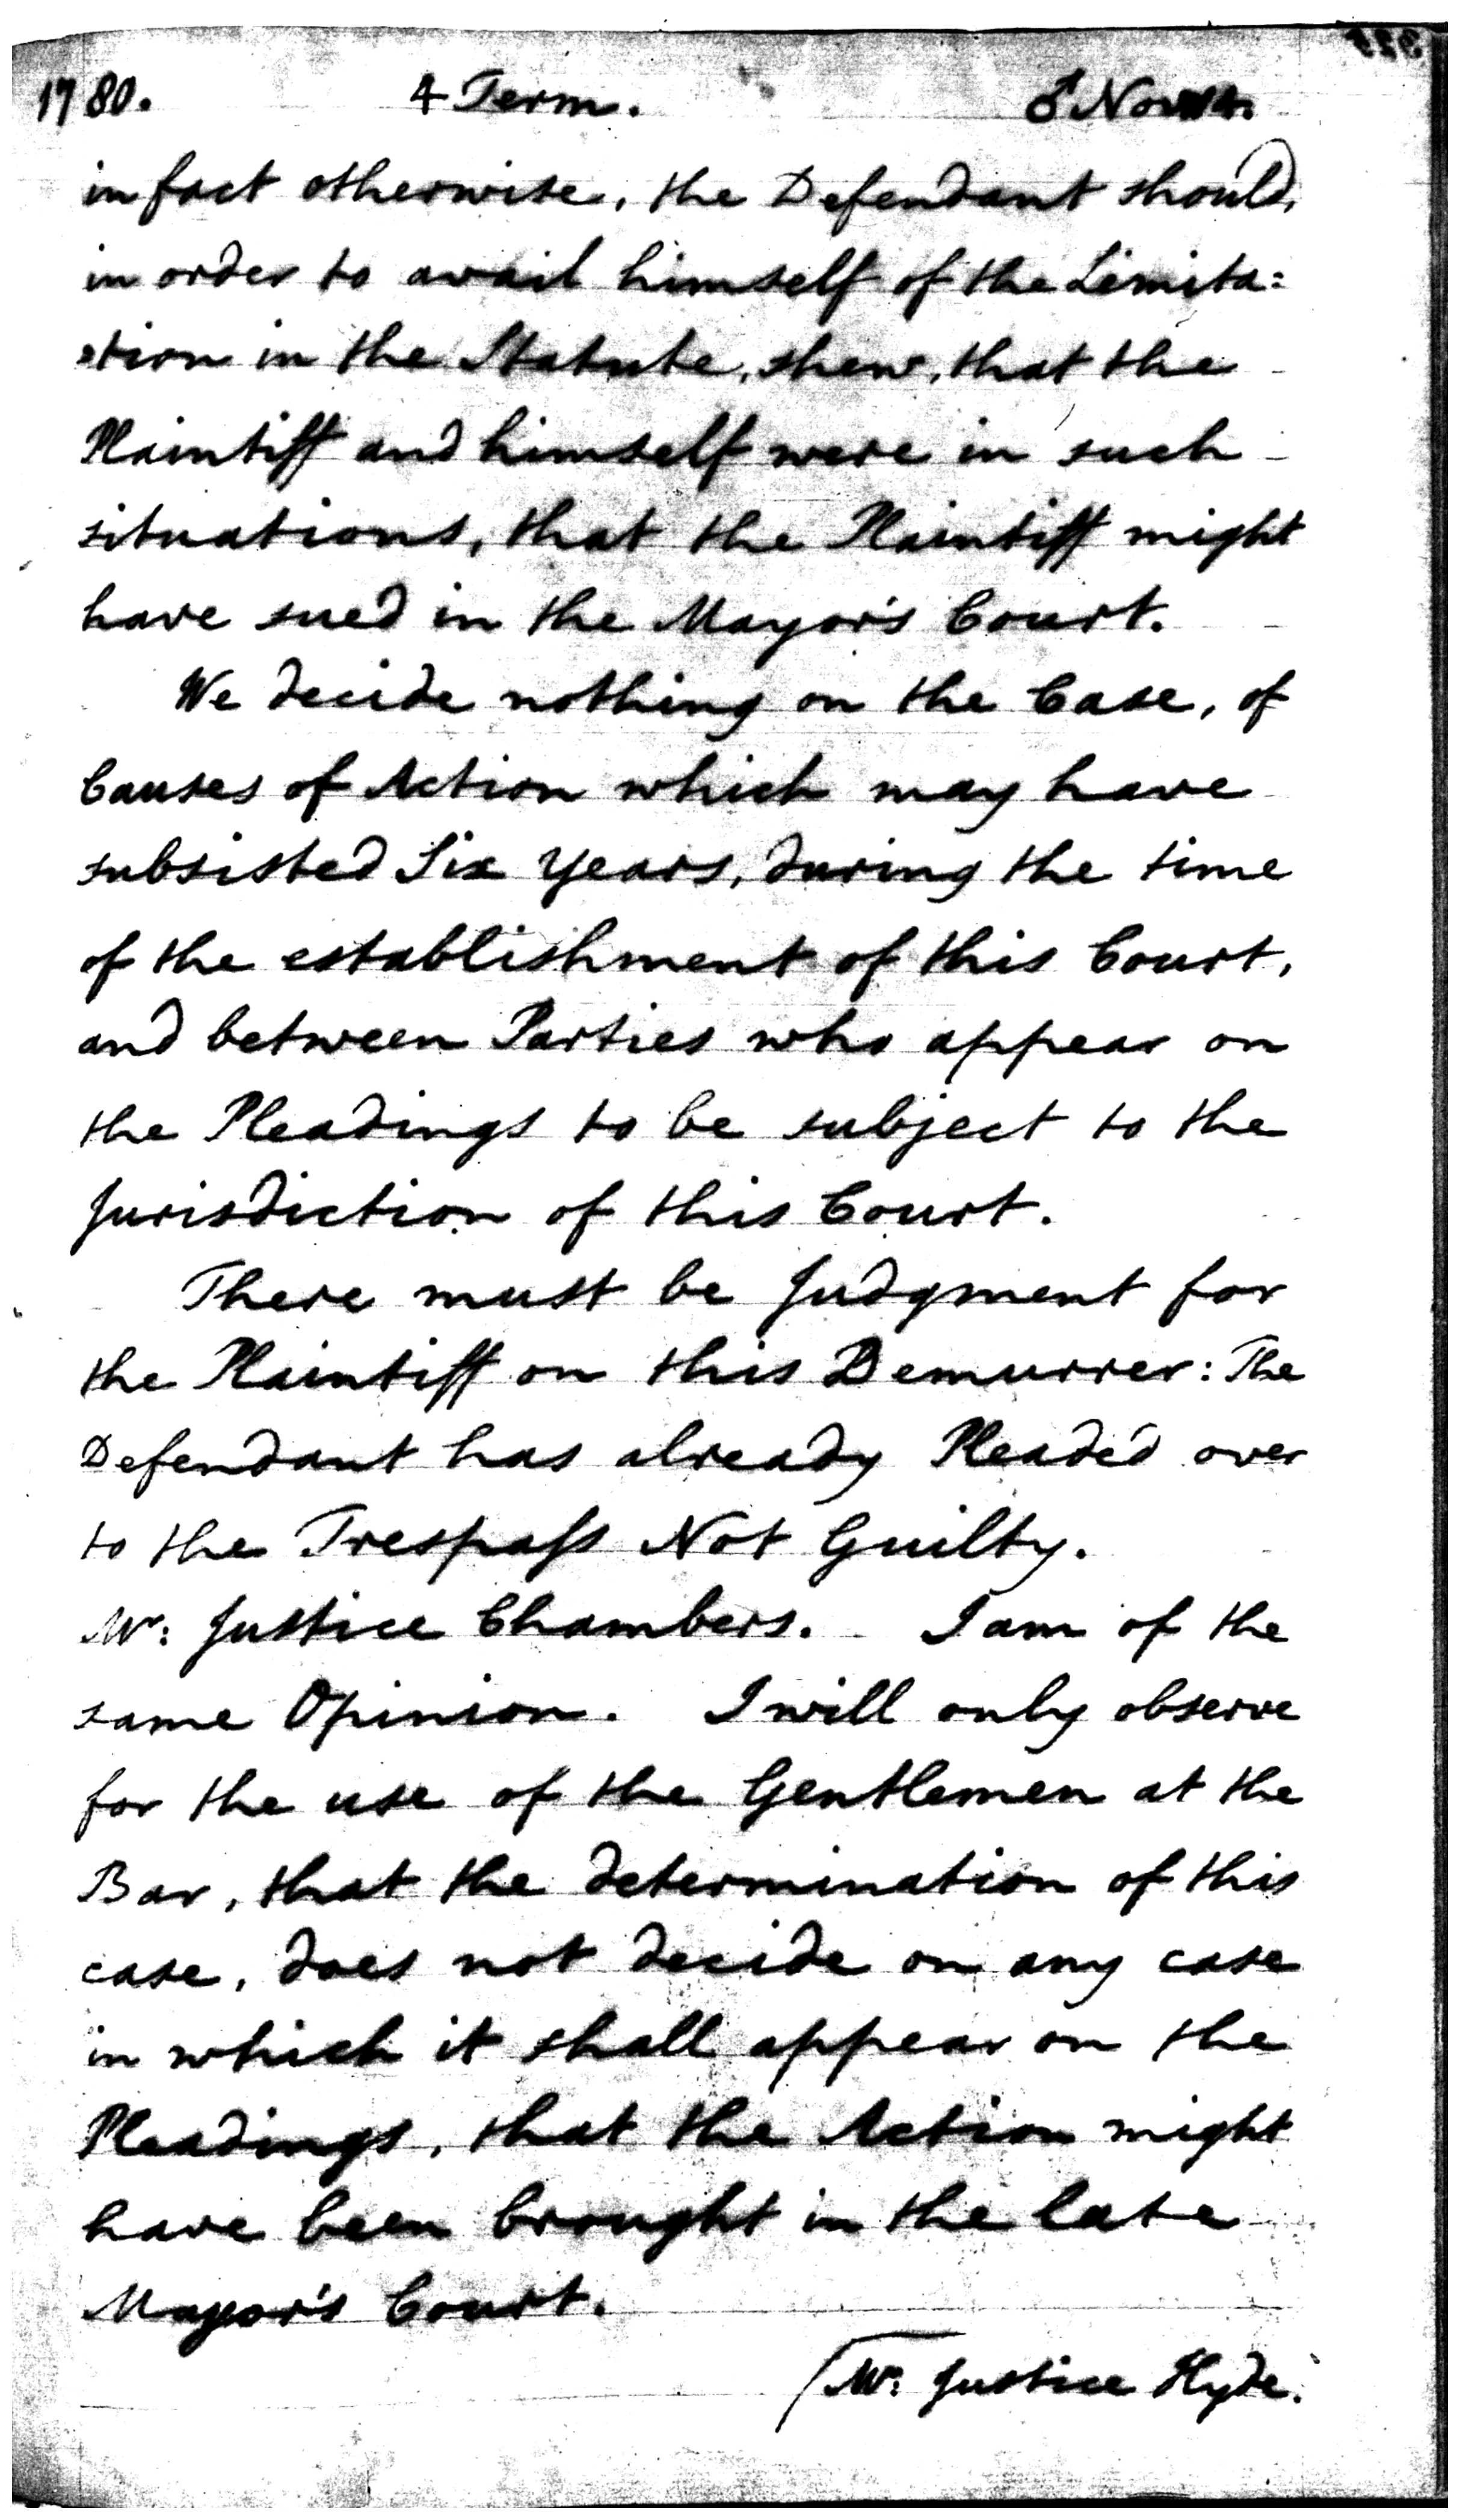 1780. 4 Term. ♂ Nov 14.
in fact otherwise, the Defendant should,
in order to avail himself of the Limita:
:tion in the Statute, shew, that the
Plaintiff and himself were in such
situations, that the Plaintiff might
have sued in the Mayor's Court.
We decide nothing on the Case, of
Causes of Action which may have
subsisted Six Years, during the time
of the establishment of this Court,
and between Parties who appear on
the Pleadings to be subject to the
Jurisdiction of this Court.
There must be Judgment for
the Plaintiff on this Demurrer: The
Defendant has already Pleaded over
to the Trespaſs Not Guilty.
Mr: Justice Chambers. I am of the
same Opinion. I will only observe
for the use of the Gentlemen at the
Bar, that the determination of this
case, does not decide on any case
in which it shall appear on the
Pleadings, that the Action might
have been brought in the late
Mayor's Court.
Mr: Justice Hyde.